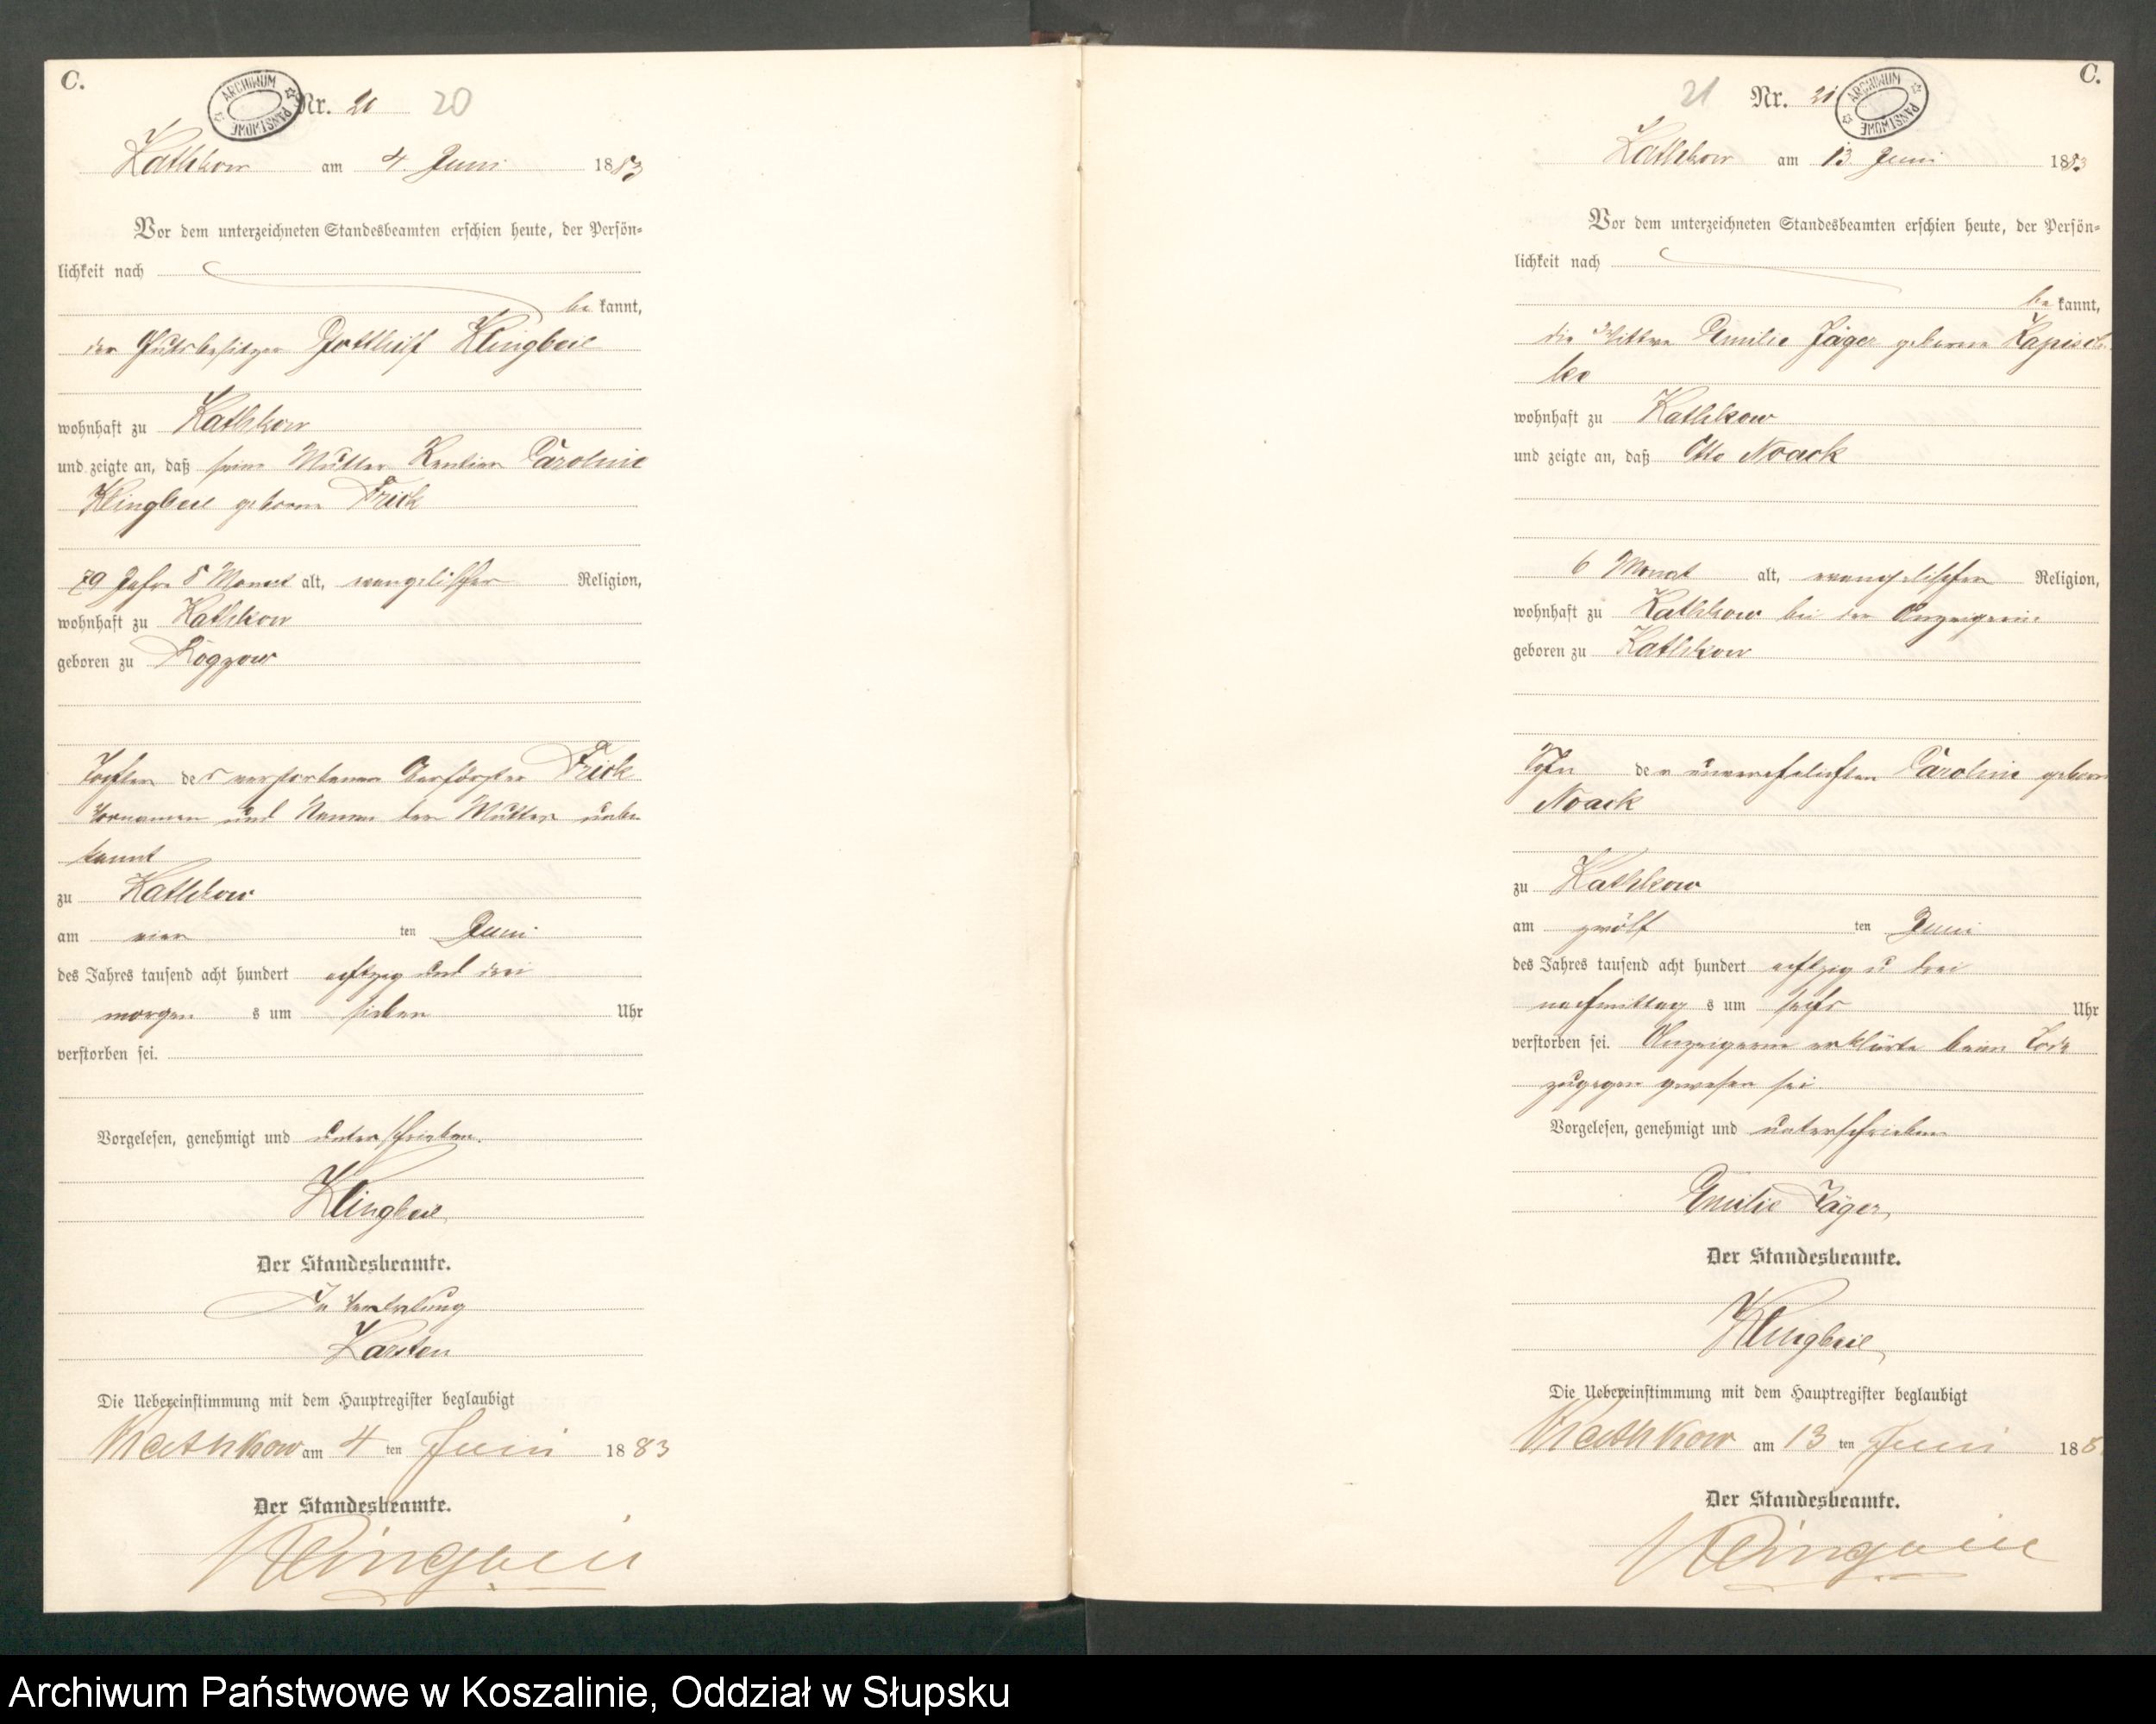 C.
ARCHIWUM PAŃSTWOWE
Nr. 20 20
Kathkow am 4. Juni 1883
Vor dem unterzeichneten Standesbeamten erschien heute, der Persön-
lichkeit nach
be kannt,
der Gutsbesitzer Gotthilf Klingbeil
wohnhaft zu Kathkow
und zeigte an, daß seine Mutter Rentier Caroline
Klingbeil geborne Frick
79 Jahre 8 Monat alt, evangelischer Religion,
wohnhaft zu Kathkow
geboren zu
Tochter der verstorbenen Oberförster Frick
Vornamen und Namen der Mutter unbe
kannt
zu Kathkow
am vier ten Juni
des Jahres tausend acht hundert achtzig und drei
morgen s um sieben Uhr
verstorben sei.
Vorgelesen, genehmigt und unterschrieben.
Klingbeil
Der Standesbeamte.
In Vertretung
Karsten
Die Uebereinstimmung mit dem Hauptregister beglaubigt
Kathkow am 4 ten Juni 1883
Der Standesbeamte.
Klingbeil
C.
21 Nr. 21
ARCHIWUM PAŃSTWOWE
Kathkow am 13. Juni 1883
Vor dem unterzeichneten Standesbeamten erschien heute, der Persön-
lichkeit nach
be kannt,
die Wittwe Emilie Jäger geborene
wohnhaft zu Kathkow
und zeigte an, daß Otto Noack
6 Monat alt, evangelischer Religion,
wohnhaft zu Kathkow bei der Anzeigerin
geboren zu Kathkow
Sohn der unverehelichten Caroline geborn
Noack
zu Kathkow
am zwölf ten Juni
des Jahres tausend acht hundert achtzig u drei
nachmittag s um sechs Uhr
verstorben sei. Anzeigerin erklärte beim Tode
zugegen gewesen sei.
Vorgelesen, genehmigt und unterschrieben
Emilie Jäger
Der Standesbeamte.
Klingbeil
Die Uebereinstimmung mit dem Hauptregister beglaubigt
Kathkow am 13 ten Juni 188
Der Standesbeamte.
Klingbeil
Archiwum Państwowe w Koszalinie, Oddział w Słupsku